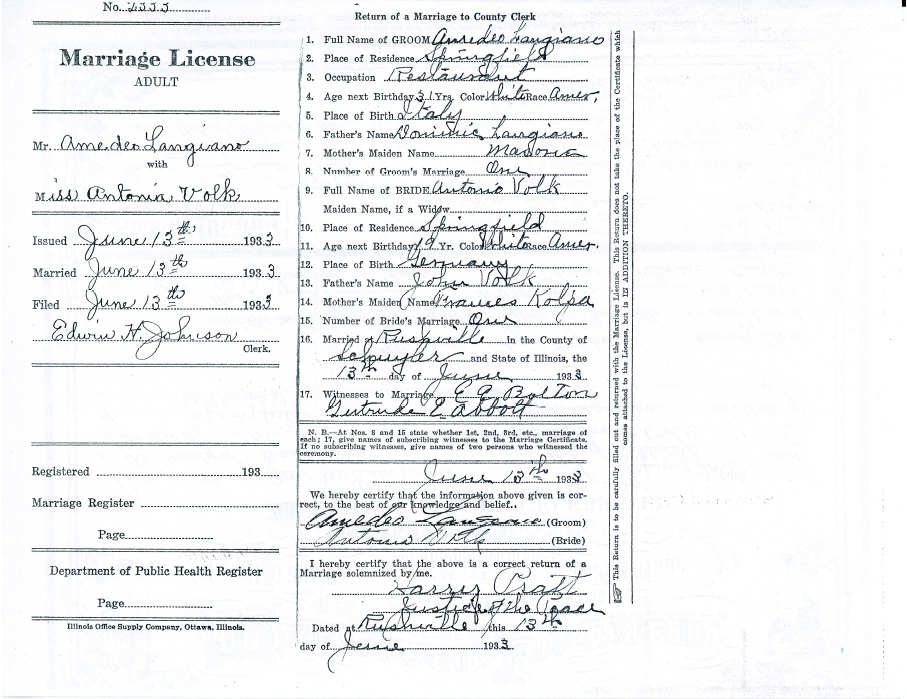 No.
Marriage License
ADULT
Mr. Amedeo Langiano
with
Miss Antonia Volk
Issued June 13th 1933
Married June 13th 1933
Filed June 13th 1933
Edwin H. Johnson
Clerk.
Registered 193
Marriage Register
Page
Department of Public Health Register
Page
Illinois Office Supply Company, Ottawa, Illinois.
Return of a Marriage to County Clerk
1. Full Name of GROOM Amedeo Langiano
2. Place of Residence Springfield
3. Occupation Restaurant
4. Age next Birthday 31 Yrs. Color White Race Amer.
5. Place of Birth Italy
6. Father's Name Dominic Langiano
7. Mother's Maiden Name
8. Number of Groom's Marriage One
9. Full Name of BRIDE Antonia Volk
Maiden Name, if a Widow
10. Place of Residence Springfield
11. Age next Birthday 19 Yr. Color White Race Amer.
12. Place of Birth Germany
13. Father's Name John Volk
14. Mother's Maiden Name Frances Kolpa
15. Number of Bride's Marriage One
16. Married at Rushville in the County of
Schuyler and State of Illinois, the
13th day of June 1933
17. Witnesses to Marriage E E Bolton
Gertrude E Abbott
N. B.—At Nos. 8 and 15 state whether 1st, 2nd, 3rd, etc., marriage of
each; 17, give names of subscribing witnesses to the Marriage Certificate.
If no subscribing witnesses, give names of two persons who witnessed the
ceremony.
June 13th 1933
We hereby certify that the information above given is cor-
rect, to the best of our knowledge and belief.
Amedeo Langiano (Groom)
Antonia Volk (Bride)
I hereby certify that the above is a correct return of a
Marriage solemnized by me.
Harry Pratt
Justice of the Peace
Dated at Rushville this 13th
day of June 1933
This Return is to be carefully filled out and returned with the Marriage License. This Return does not take the place of the Certificate which
comes attached to the License, but is IN ADDITION THERETO.